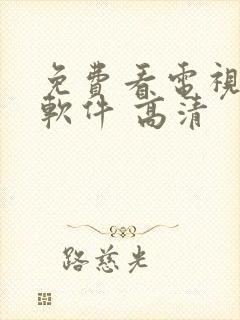 免費看電視
軟件 高清
路慈光